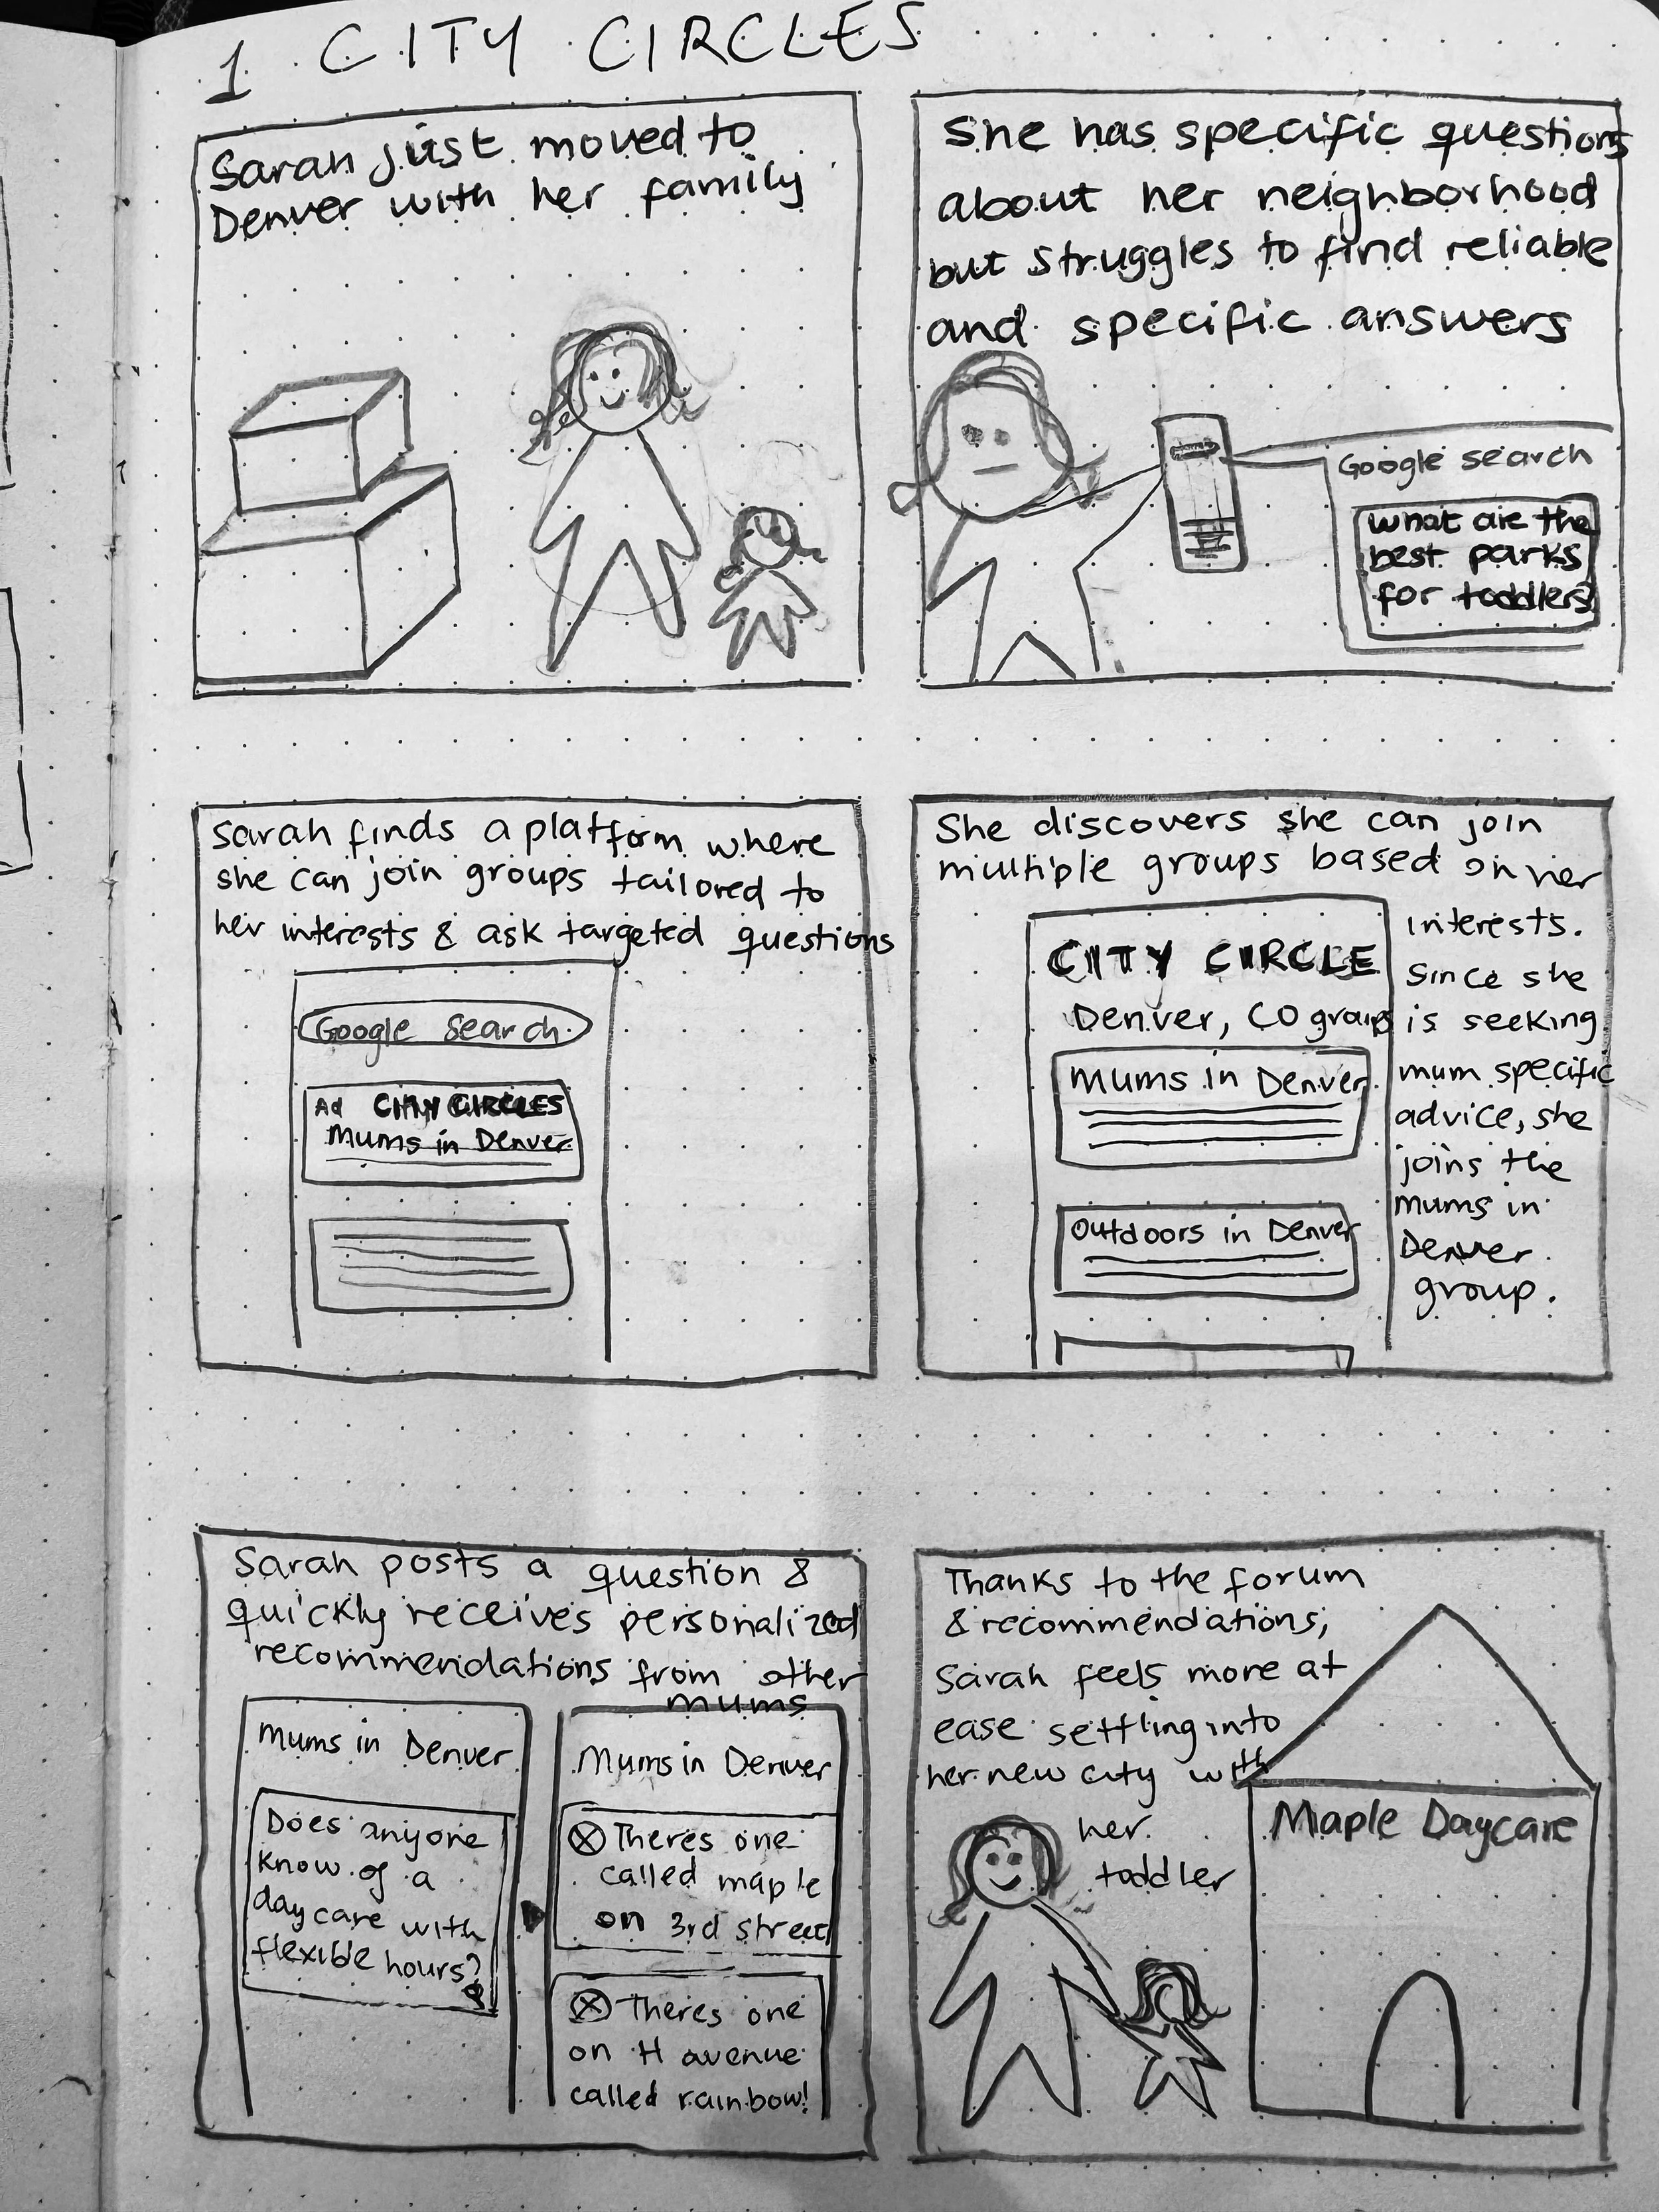 1 CITY CIRCLES
Sarah just moved to
Denver with her family
She has specific questions
about her neighborhood
but struggles to find reliable
and specific answers
Google search
What are the
best parks
for toddlers?
Sarah finds a platform where
she can join groups tailored to
her interests & ask targeted questions
Google Search
Ad CITY CIRCLES
Mums in Denver
She discovers she can join
multiple groups based on her
interests.
Since she
is seeking
mum specific
advice, she
joins the
mums in
Denver
group.
CITY CIRCLE
Denver, CO groups
Mums in Denver
Outdoors in Denver
Sarah posts a question &
quickly receives personalized
recommendations from other
mums
Mums in Denver
Does anyone
know of a
day care with
flexible hours?
Mums in Denver
Theres one
called maple
on 3rd street
Theres one
on H avenue
called rainbow!
Thanks to the forum
& recommendations,
Sarah feels more at
ease settling into
her new city with
her
toddler
Maple Daycare